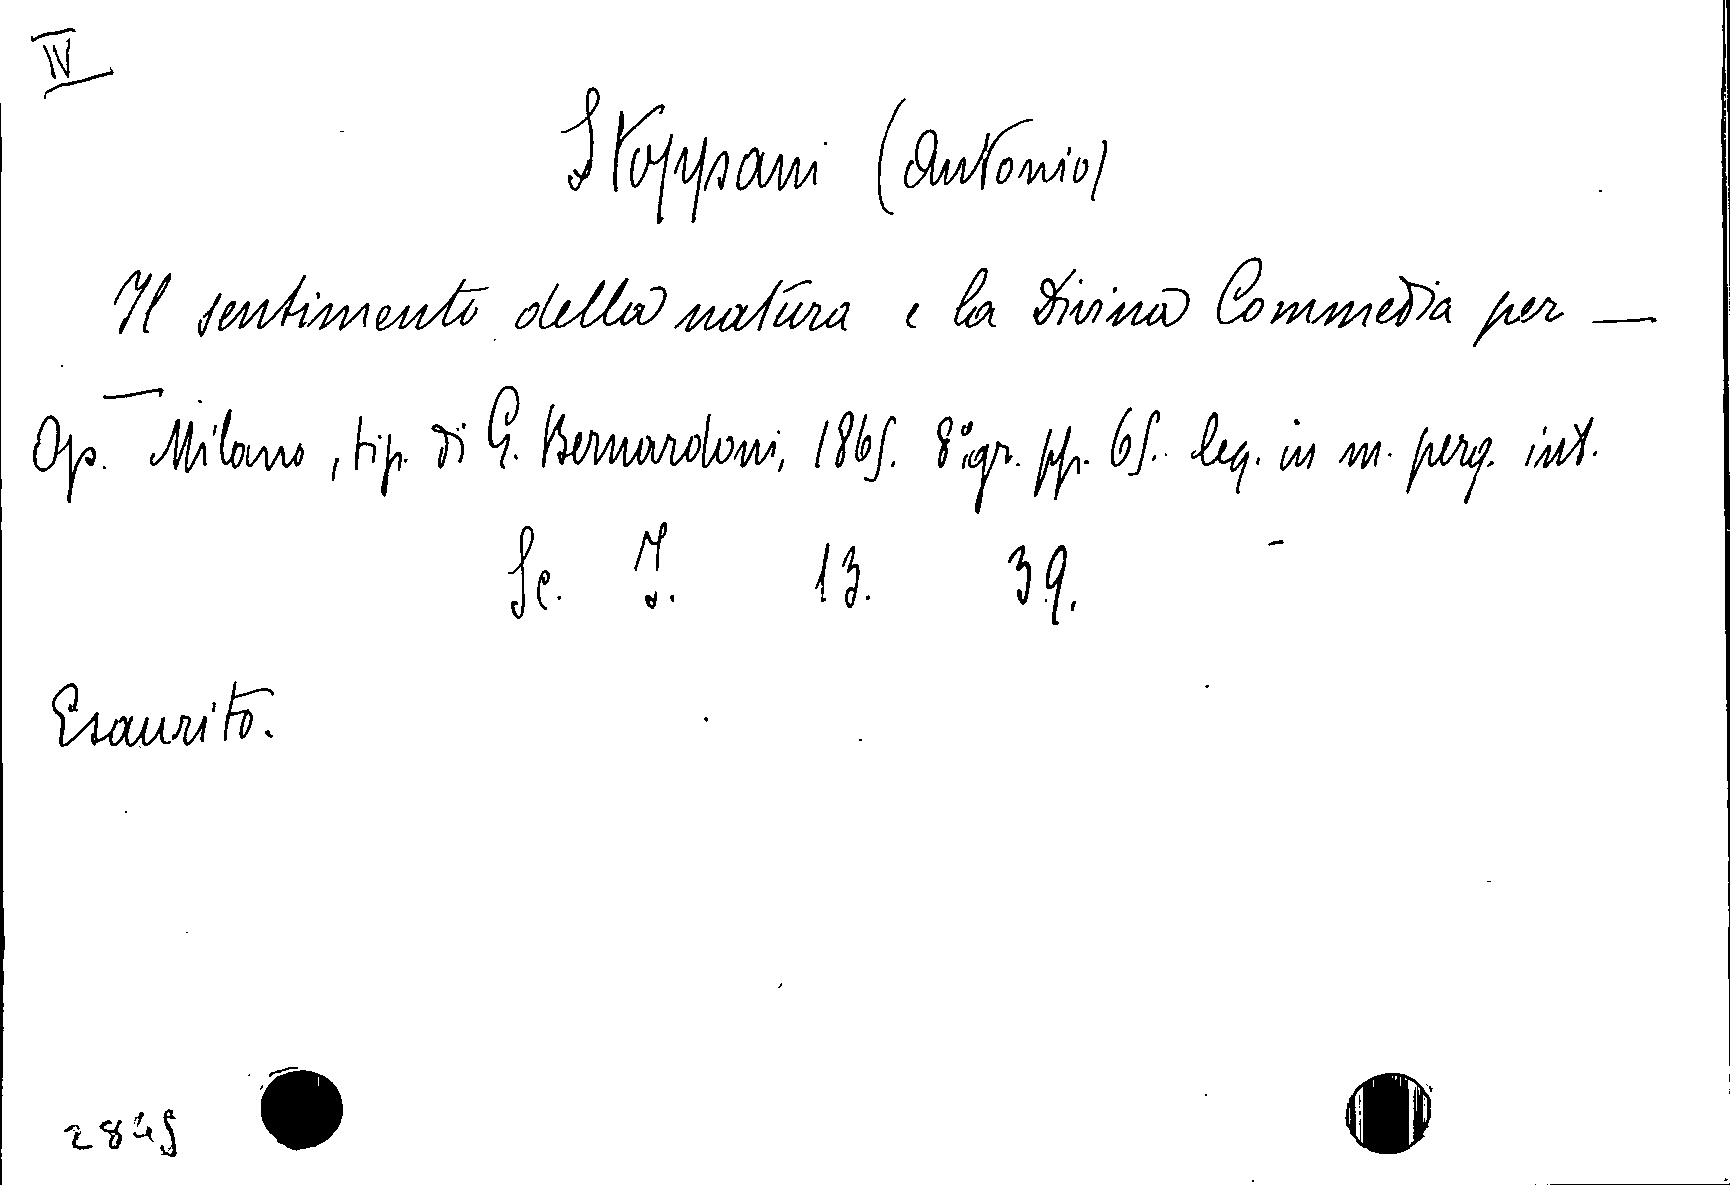 IV
Stoppani (Antonio)
Il sentimento della natura e la Divina Commedia per —
Op. — Milano, tip. di G. Bernardoni, 1865. 8° gr. pp. 65. leg. in m. perg. int.
Sc. I. 13. 39. -
Esaurito.
2845